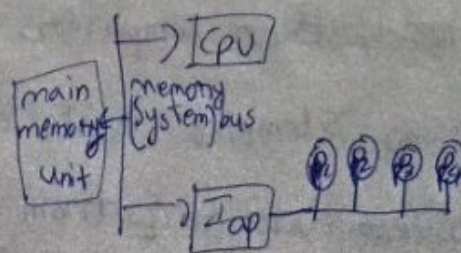 CPU
main
memory
unit
memory
(system) bus
Iop
P1 P2 P3 P4